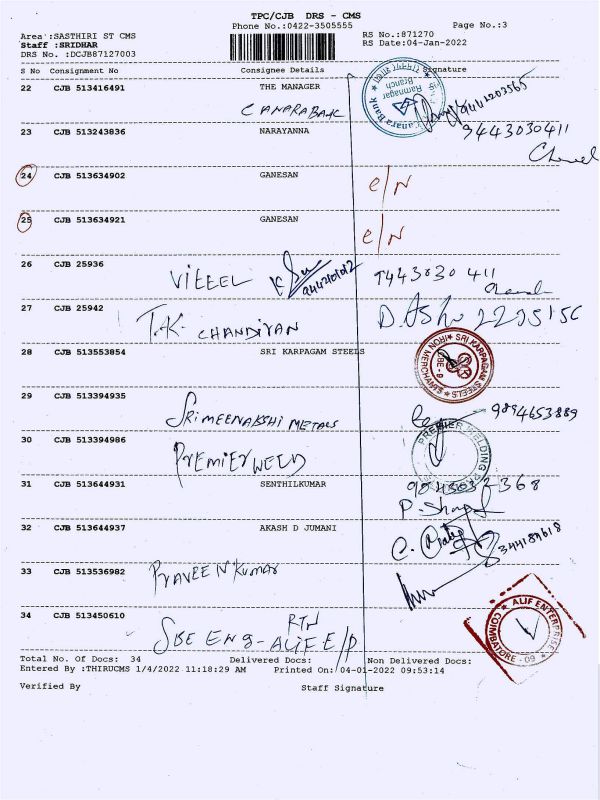 TPC/CJB DRS - CMS
Phone No.:0422-3505555 Page No.:3
Area :SASTHIRI ST CMS RS No.:871270
Staff :SRIDHAR RS Date:04-Jan-2022
DRS No. :DCJB87127003
S No Consignment No Consignee Details Signature
22 CJB 513416491 THE MANAGER
CANARA BANK
Canara Bank Ramnagar Branch
23 CJB 513243836 NARAYANNA 9443030411
24 CJB 513634902 GANESAN e/N
25 CJB 513634921 GANESAN e/N
26 CJB 25936 9443030 411
27 CJB 25942 T.K. CHANDIYAN
28 CJB 513553854 SRI KARPAGAM STEELS
SRI KARPAGAM STEELS IRON MERCHANTS CBE - 9
29 CJB 513394935
SRI MEENAKSHI METALS 9894653889
30 CJB 513394986
PREMIER WELD
PREMIER WELDING
31 CJB 513644931 SENTHILKUMAR
32 CJB 513644937 AKASH D JUMANI
33 CJB 513536982 PRAVEEN KUMAR
34 CJB 513450610 RTN
SBE ENG - ALIF E/P
ALIF ENTERPRISE COIMBATORE - 09
Total No. Of Docs: 34 Delivered Docs: Non Delivered Docs:
Entered By :THIRUCMS 1/4/2022 11:18:29 AM Printed On: 04-01-2022 09:53:14
Verified By Staff Signature